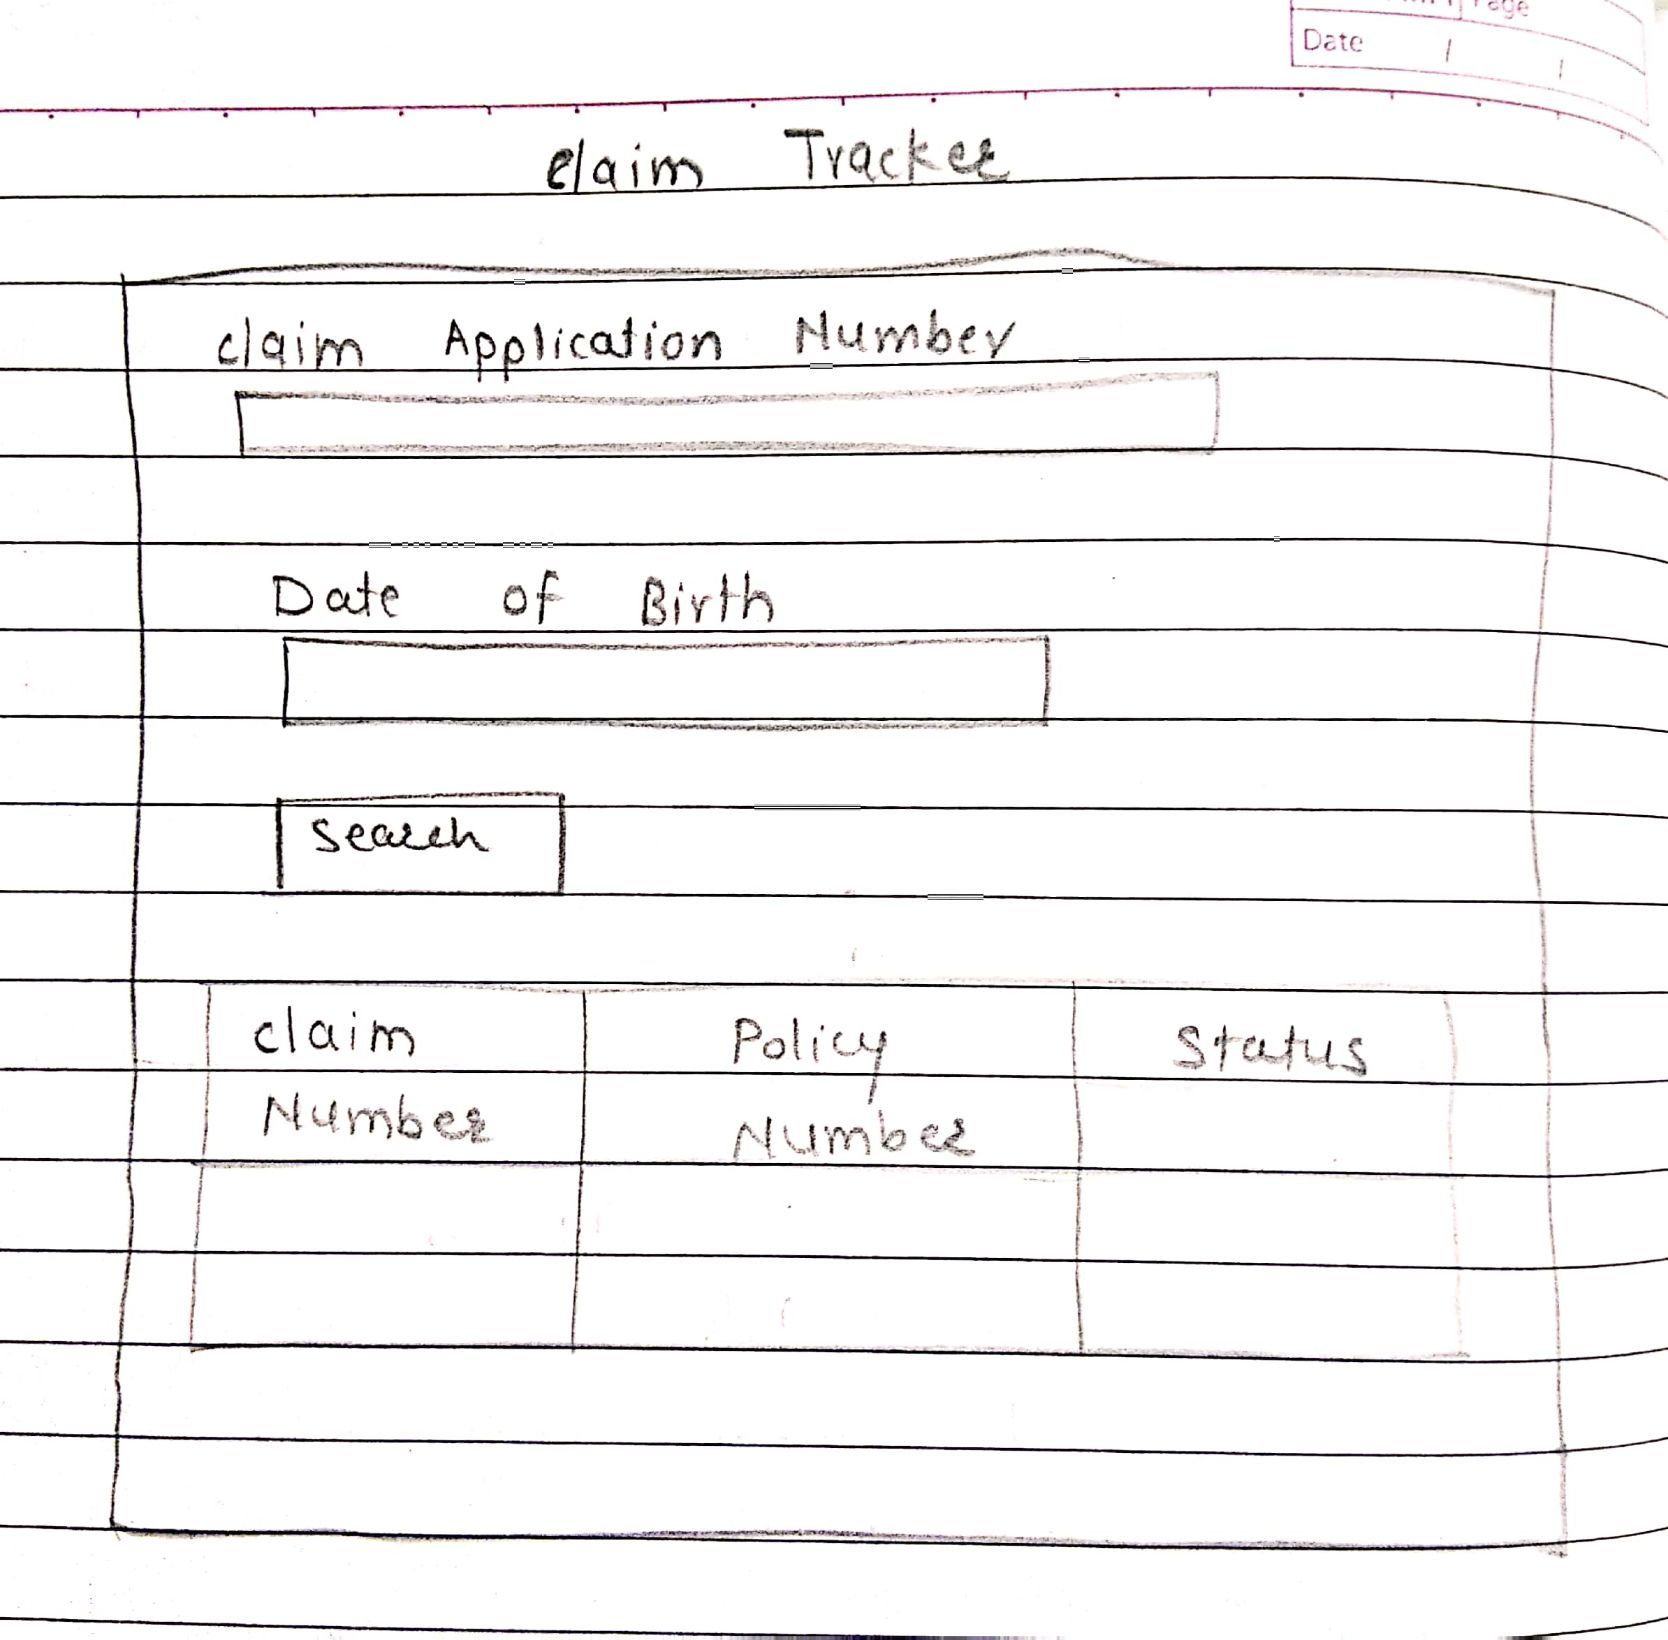 Page
Date / /
Claim Tracker
Claim Application Number
Date of Birth
Search
Claim Number
Policy Number
Status